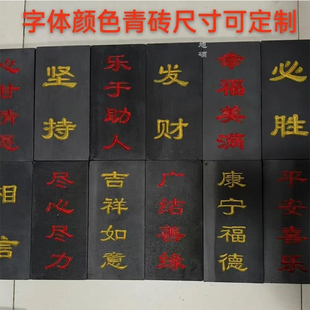 字体颜色青砖尺寸可定制
心甘情愿
坚持
乐于助人
发财
幸福美满
必胜
相信
尽心尽力
吉祥如意
广结善缘
康宁福德
平安喜乐